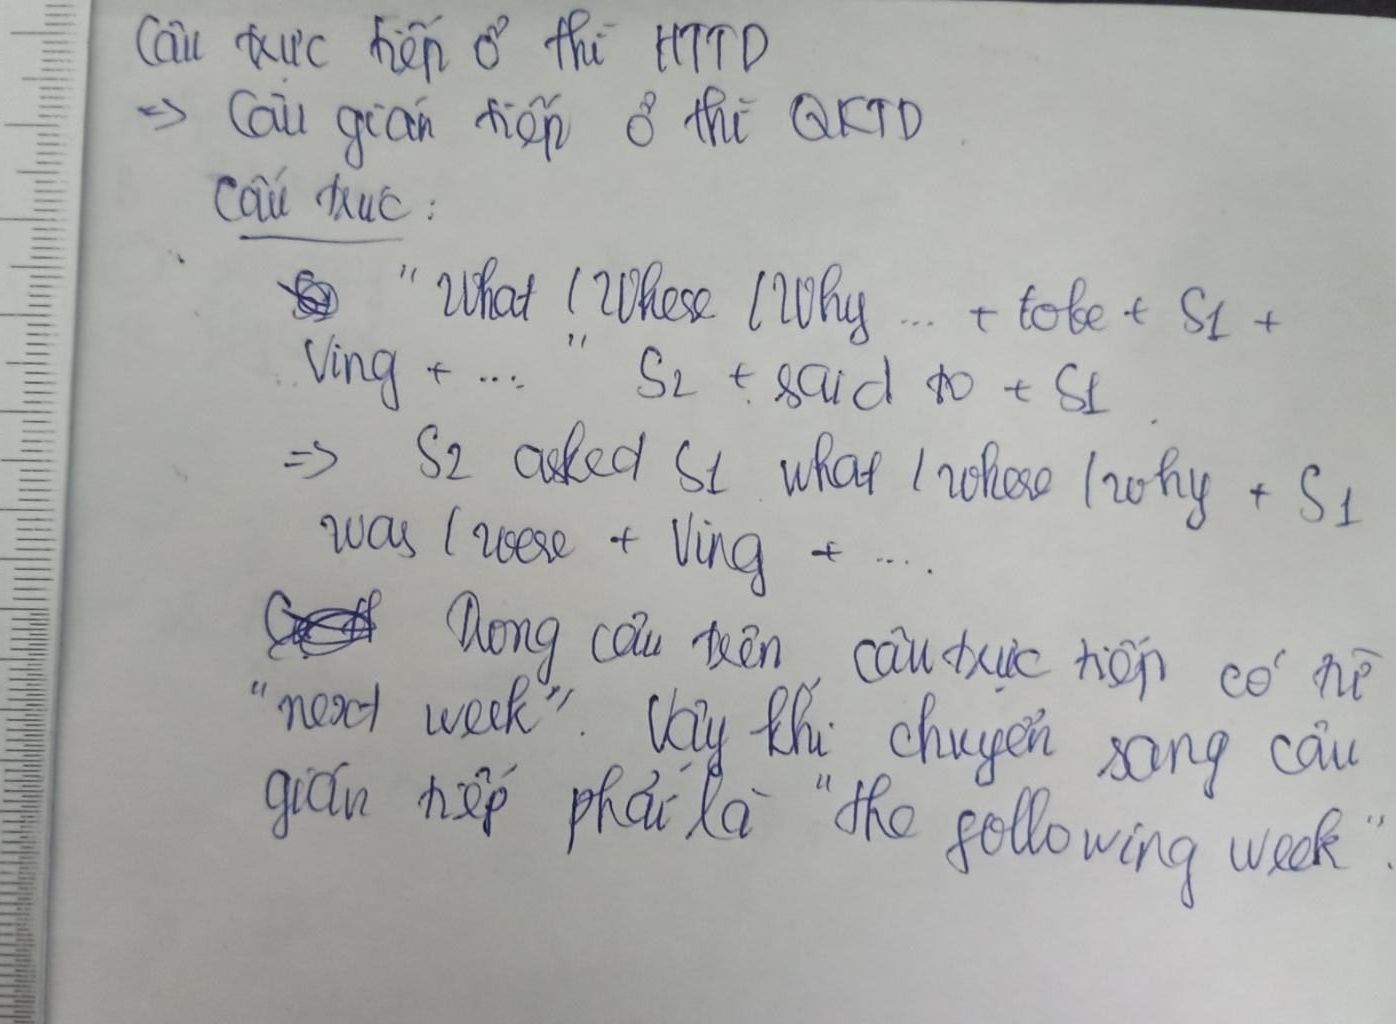 Câu trực tiếp ở thì HTTD
=> Câu gián tiếp ở thì QKTD
Cấu trúc:
"What / Where / Why ... + tobe + S1 +
Ving + ...." S2 + said to + S1
=> S2 asked S1 what / where / why + S1
was / were + Ving + ....
Trong câu trên, câu trực tiếp có từ
"next week". Vậy khi chuyển sang câu
gián tiếp phải là "the following week".